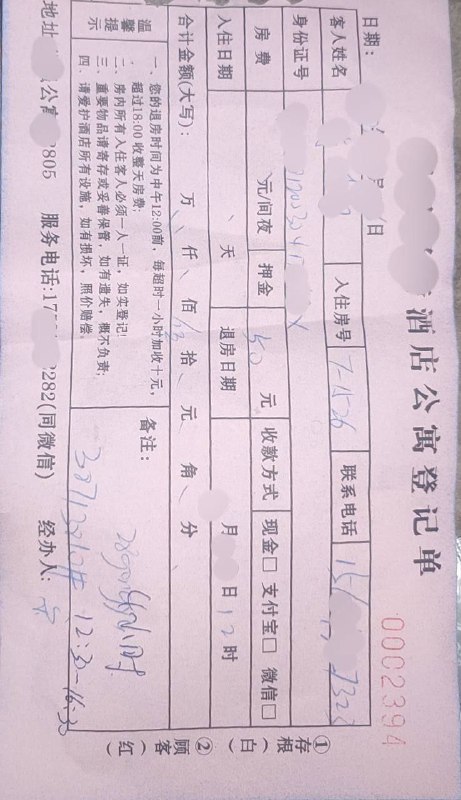 酒店公寓登记单
0002394
日期： 日
客人姓名 入住房号 7-1526 联系电话 15 7323
身份证号 X
房费 元/间夜 押金 元 收款方式 现金□ 支付宝□ 微信□
入住日期 、天 退房日期 月 日 12时
合计金额(大写)： 万 仟 佰 拾 元 角 分
温馨提示
一、您的退房时间为中午12:00前，每超时一小时加收十元，
超过18:00 收整天房费;
二、房内所有入住客人必须一人一证，如实登记!
三、重要物品请寄存或妥善保管，如有遗失，概不负责;
四、请爱护酒店所有设施，如有损坏，照价赔偿
备注：
12:30-16:30
地址 公寓 2805 服务电话:17 2282(同微信) 经办人:
①存根(白) ②顾客(红)